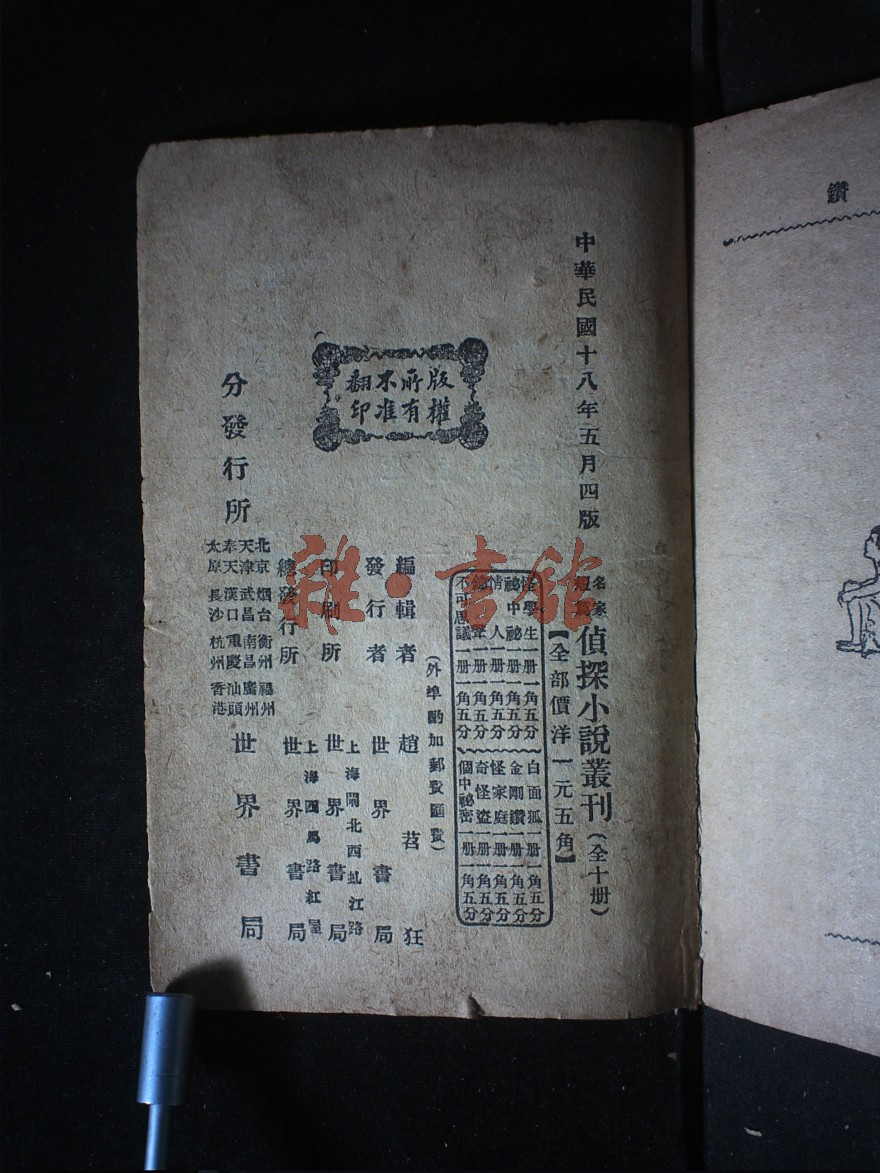 鑽
中華民國十八年五月四版
名家短篇偵探小說叢刊(全十册)
【全部價洋一元五角】
怪學生一册一角五分
祕中祕一册一角五分
情人一册一角五分
聲一册一角五分
不可思議一册一角五分
白面狐一册一角五分
金剛鑽一册一角五分
怪家庭一册一角五分
奇怪盜一册一角五分
個中祕密一册一角五分
(外埠酌加郵費匯費)
版權所有不准翻印
編輯者 趙苕狂
發行者 世界書局
印刷所 上海閘北西虬江路世界書局
總發行所 上海四馬路紅屋世界書局
分發行所
北京 烟台 衡州 福州
天津 武昌 南昌 廣州
奉天 漢口 重慶 汕頭
太原 長沙 杭州 香港
世界書局
雜·書館